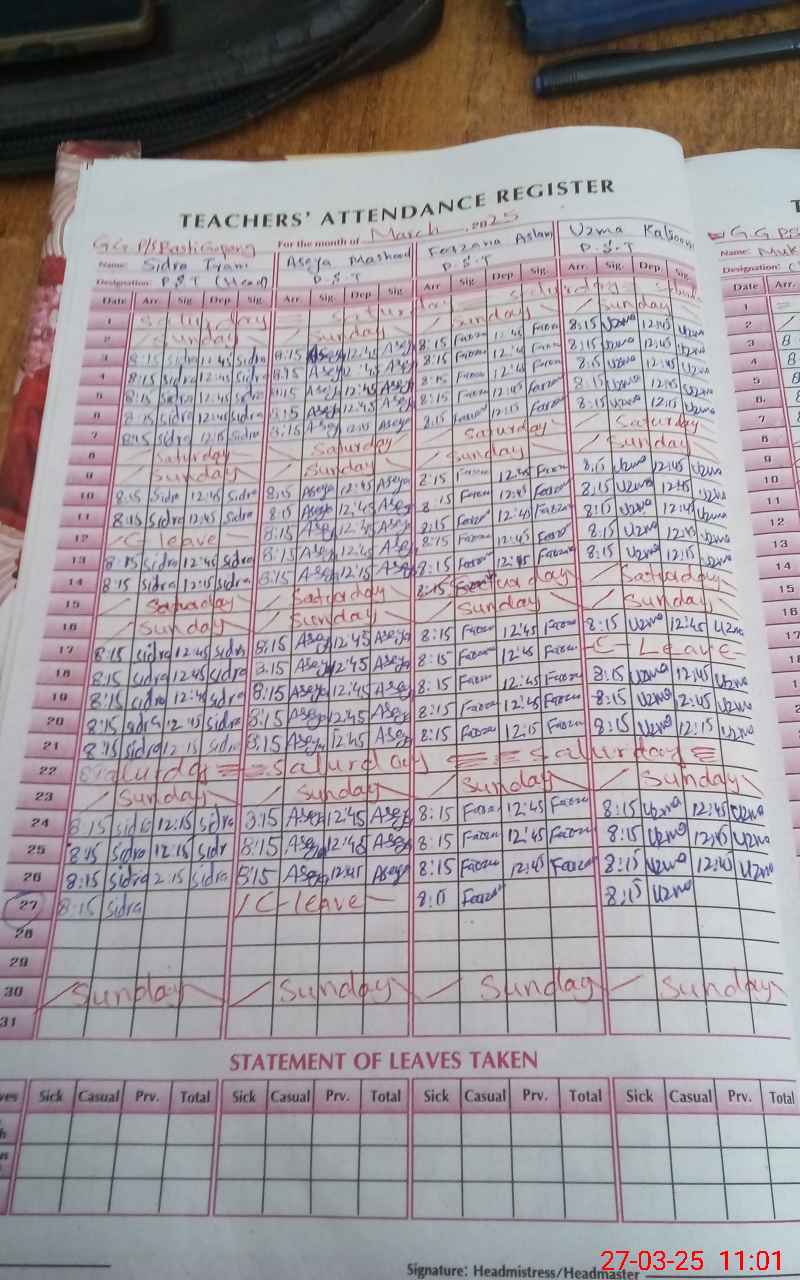 TEACHERS' ATTENDANCE REGISTER
G.G P/S Basti Gopang For the month of March, 2025
Name: Sidra Iram Aseya Rasheed Fouzana Aslam Uzma Kalsoom
Designation: P.S.T (Head) P.S.T P.S.T P.S.T
Date Arr. Sig. Dep Sig. Arr. Sig. Dep Sig. Arr. Sig. Dep. Sig. Arr. Sig. Dep Sig.
1 Saturday Saturday Saturday
2 Sunday Sunday Sunday Sunday
3 8:15 Sidra 12:45 Sidra 8:15 Aseya 12:45 Aseya 8:15 12:45 8:15 Uzma 12:45 Uzma
4 8:15 Sidra 12:45 Sidra 8:15 Aseya Aseya 8:15 12:45 8:15 Uzma 12:45 Uzma
5 8:15 Sidra 12:45 Sidra 8:15 Aseya 12:45 Aseya 8:15 12:45 8:15 Uzma 12:45 Uzma
6 8:15 Sidra 12:45 Sidra 8:15 Aseya 12:45 Aseya 8:15 12:45 8:15 Uzma 12:45 Uzma
7 8:15 Sidra 12:15 Sidra 8:15 Aseya 12:15 Aseya 8:15 12:15 8:15 Uzma 12:15 Uzma
8 Saturday Saturday Saturday Saturday
9 Sunday Sunday Sunday Sunday
10 8:15 Sidra 12:45 Sidra 8:15 Aseya 12:45 Aseya 8:15 12:45 8:15 Uzma 12:45 Uzma
11 8:15 Sidra 12:45 Sidra 8:15 Aseya 12:45 Aseya 8:15 12:45 8:15 Uzma 12:45 Uzma
12 C leave 8:15 Aseya 12:45 Aseya 8:15 12:45 8:15 Uzma 12:45 Uzma
13 8:15 Sidra 12:45 Sidra 8:15 Aseya 12:45 Aseya 8:15 12:45 8:15 Uzma 12:45 Uzma
14 8:15 Sidra 12:15 Sidra 8:15 Aseya 12:15 Aseya 8:15 8:15 Uzma 12:15 Uzma
15 Saturday Saturday 8:15 Saturday Saturday
16 Sunday Sunday Sunday Sunday
17 8:15 Sidra 12:45 Sidra 8:15 Aseya 12:45 Aseya 8:15 12:45 8:15 Uzma 12:45 Uzma
18 8:15 Sidra 12:45 Sidra 8:15 Aseya 12:45 Aseya 8:15 12:45 C-Leave
19 8:15 Sidra 12:45 Sidra 8:15 Aseya 12:45 Aseya 8:15 12:45 8:15 Uzma 12:45 Uzma
20 8:15 Sidra 12:45 Sidra 8:15 Aseya 12:45 Aseya 8:15 12:45 8:15 Uzma 2:45 Uzma
21 8:15 Sidra 12:15 Sidra 8:15 Aseya 12:45 Aseya 8:15 12:15 8:15 Uzma 12:15 Uzma
22 Saturday Saturday Saturday
23 Sunday Sunday Sunday Sunday
24 8:15 Sidra 12:15 Sidra 8:15 Aseya 12:45 Aseya 8:15 12:45 8:15 Uzma 12:45 Uzma
25 8:15 Sidra 12:15 Sidr 8:15 Aseya 12:45 Aseya 8:15 12:45 8:15 Uzma 12:45 Uzma
26 8:15 Sidra 2:15 Sidra 8:15 Aseya 12:45 Aseya 8:15 12:45 8:15 Uzma 12:45 Uzma
27 8:15 Sidra C-leave 8:15 8:15 Uzma
28
29
30 Sunday Sunday Sunday Sunday
31
STATEMENT OF LEAVES TAKEN
Sick Casual Prv. Total Sick Casual Prv. Total Sick Casual Prv. Total Sick Casual Prv. Total
Signature: Headmistress/Headmaster
G.G
Name: Muk
Designation:
Date Arr.
1
2
3 8
4 8
5 8
6
7
8
9
10
11
12
13
14
15
16
27-03-25 11:01